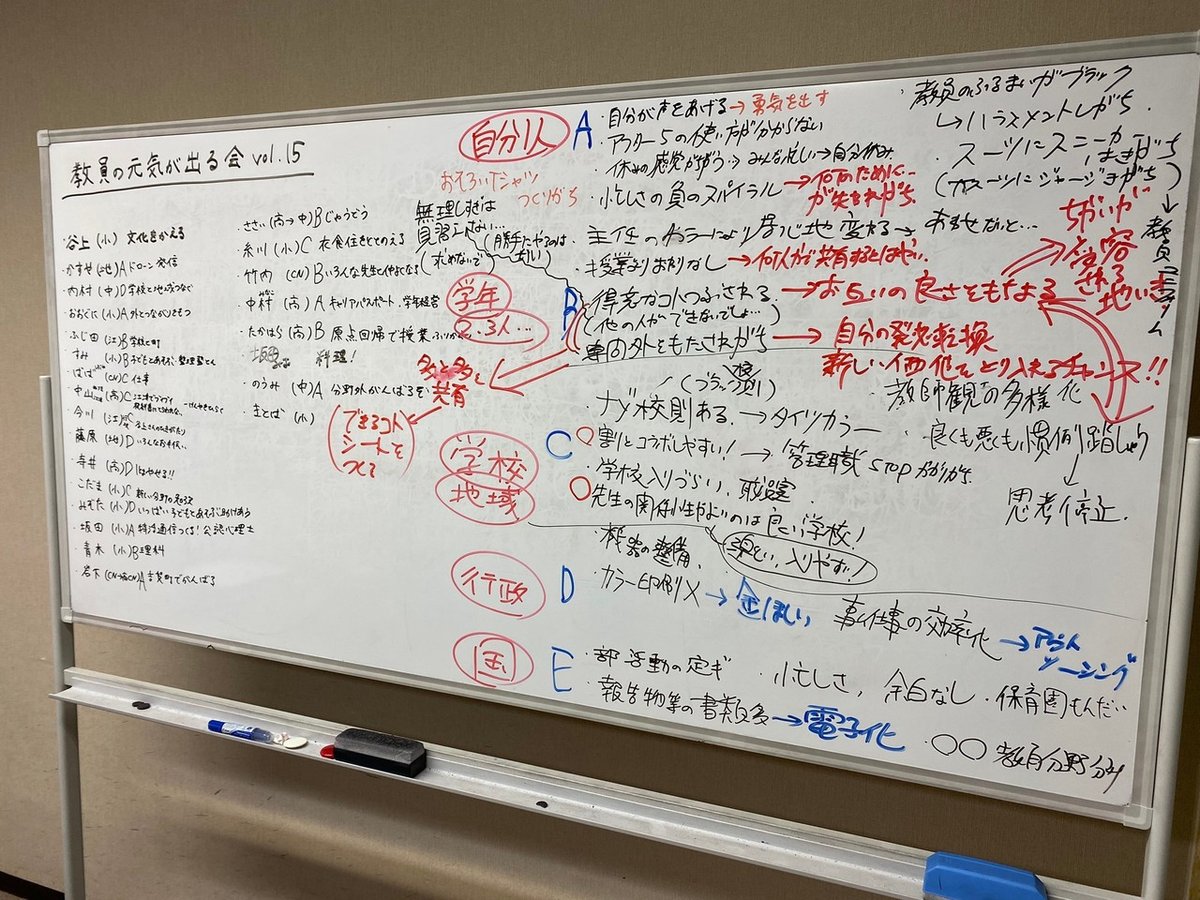 教員の元気が出る会 vol.15
・谷上 (小) 文化をかえる
・かすせ (地) A ドローン発信
・内村 (中) D 学校と地域つなぐ
・おおぐに (小) A 外とつながりをもつ
・ふじ田 (江) B 学校と町
・すみ (小) B 子どもとあそぶ、整理整とん
・ばば (CN) C 仕事
・中山 (高) C
・今川 (江) C
・藤原 (地) D いろんなお手伝い
・寺井 (高) D はやせる!!
・こだま (小) C 新しい分野の勉強
・みぞた (小) D いっぱい子どもとあそぶ、助けあう
・坂田 (小) A 特活通信つくる! 公認心理士
・青木 (小) B 理科
・岩下 A 志賀町でがんばる
・ささい (高→中) B じゅうどう
・糸川 (小) C 衣食住をととのえる
・竹内 (CN) B いろんな先生となかよくなる
・中村 (高) A キャリアパスポート、学年経営
・たかはら (高) B 原点回帰で授業ふりかえり
料理!
・のうみ (中) A 分野外がんばるぞ
・きとば (小)
おそろいTシャツ
つくりがち
無理しすぎは
見習えない…
(求めないで)
(自分勝手にやるのは
自分1人 A
・自分が声をあげる→勇気を出す
・アフター5の使い方が分からない
・休みの感覚がちがう→みんな忙しい→自分休み
・忙しさの負のスパイラル→何のために…
が失われがち。
・主任のカラーにより居心地変わる→あるせなかと…
・授業よりおわりなし→何人かで共有するとはやい。
学年
2.3人… B
・得意なコトつぶされる→お互いの良さをもちよる
(他の人ができないでしょ…)
・専門外をもたされがち→自分の発想転換
新しい価値をとり入れるチャンス!!
多と多を
共有
できるコト
シートを
つくる
教員のふるまいがブラック
↳ハラスメントしがち。
・スーツにスニーカー
はきがち
(オスーツにジャージきがち)
↓
教員
ちがいが
受容
される
地いき
学校
地域 C
(ブラック校則)
・ナゾ校則ある→タイツカラー
○割とコラボしやすい!→管理職STOPがかかりがち。
・学校入りづらい、職員室
○先生の関係性がよいのは良い学校!
涼しい、入りやすい!
・教師観の多様化
・良くも悪くも慣例踏しゅう
↓
思考停止
行政 D
・機器の整備、
・カラー印刷×→金ほしい
事ム仕事の効率化→アウト
ソーシング
国 E
・部活動の定ギ
・忙しさ、余白なし
・保育園もんだい
・報告物等の書類多→電子化
・○○教育分野分み